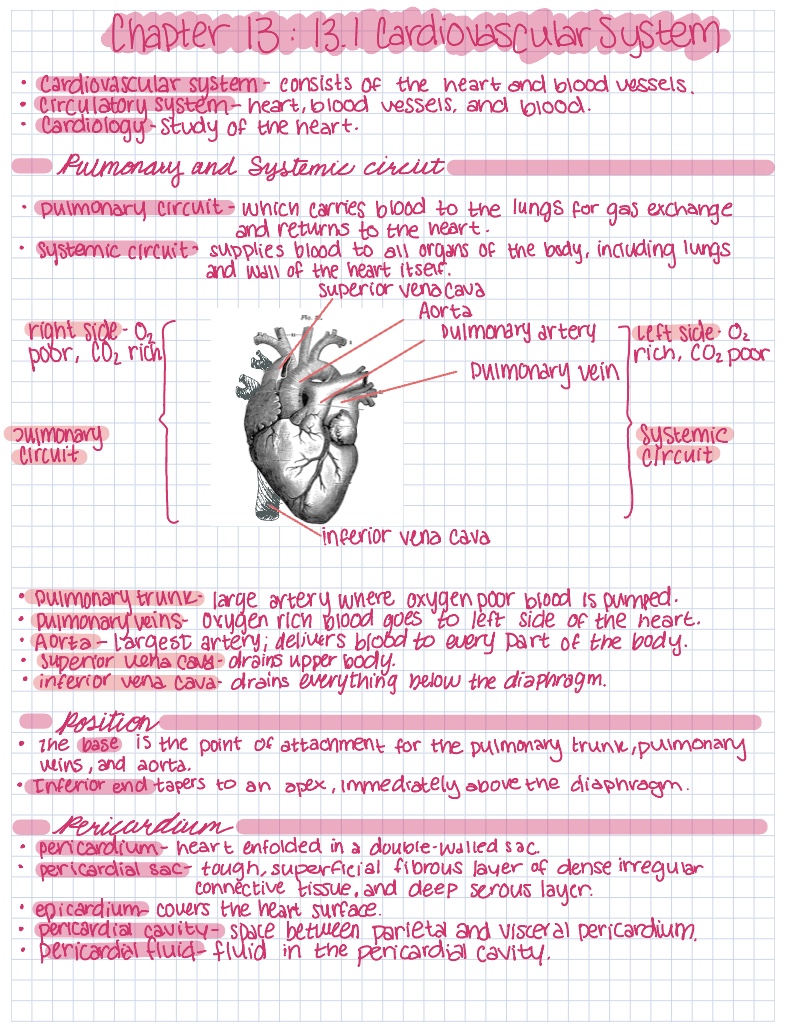 Chapter 13: 13.1 Cardiovascular System
• Cardiovascular system - consists of the heart and blood vessels.
• Circulatory system - heart, blood vessels, and blood.
• Cardiology - study of the heart.
Pulmonary and Systemic circuit
• pulmonary circuit - which carries blood to the lungs for gas exchange
and returns to the heart.
• systemic circuit - supplies blood to all organs of the body, including lungs
and wall of the heart itself.
superior vena cava
Aorta
pulmonary artery
pulmonary vein
right side - O₂
poor, CO₂ rich
left side - O₂
rich, CO₂ poor
pulmonary
circuit
systemic
circuit
inferior vena cava
• pulmonary trunk - large artery where oxygen poor blood is pumped.
• pulmonary veins - oxygen rich blood goes to left side of the heart.
• Aorta - Largest artery; delivers blood to every part of the body.
• superior vena cava - drains upper body.
• inferior vena cava - drains everything below the diaphragm.
Position
• The base is the point of attachment for the pulmonary trunk, pulmonary
veins, and aorta.
• Inferior end tapers to an apex, immediately above the diaphragm.
Pericardium
• pericardium - heart enfolded in a double-walled sac.
• pericardial sac - tough, superficial fibrous layer of dense irregular
connective tissue, and deep serous layer.
• epicardium - covers the heart surface.
• pericardial cavity - space between parietal and visceral pericardium.
• pericardial fluid - fluid in the pericardial cavity.